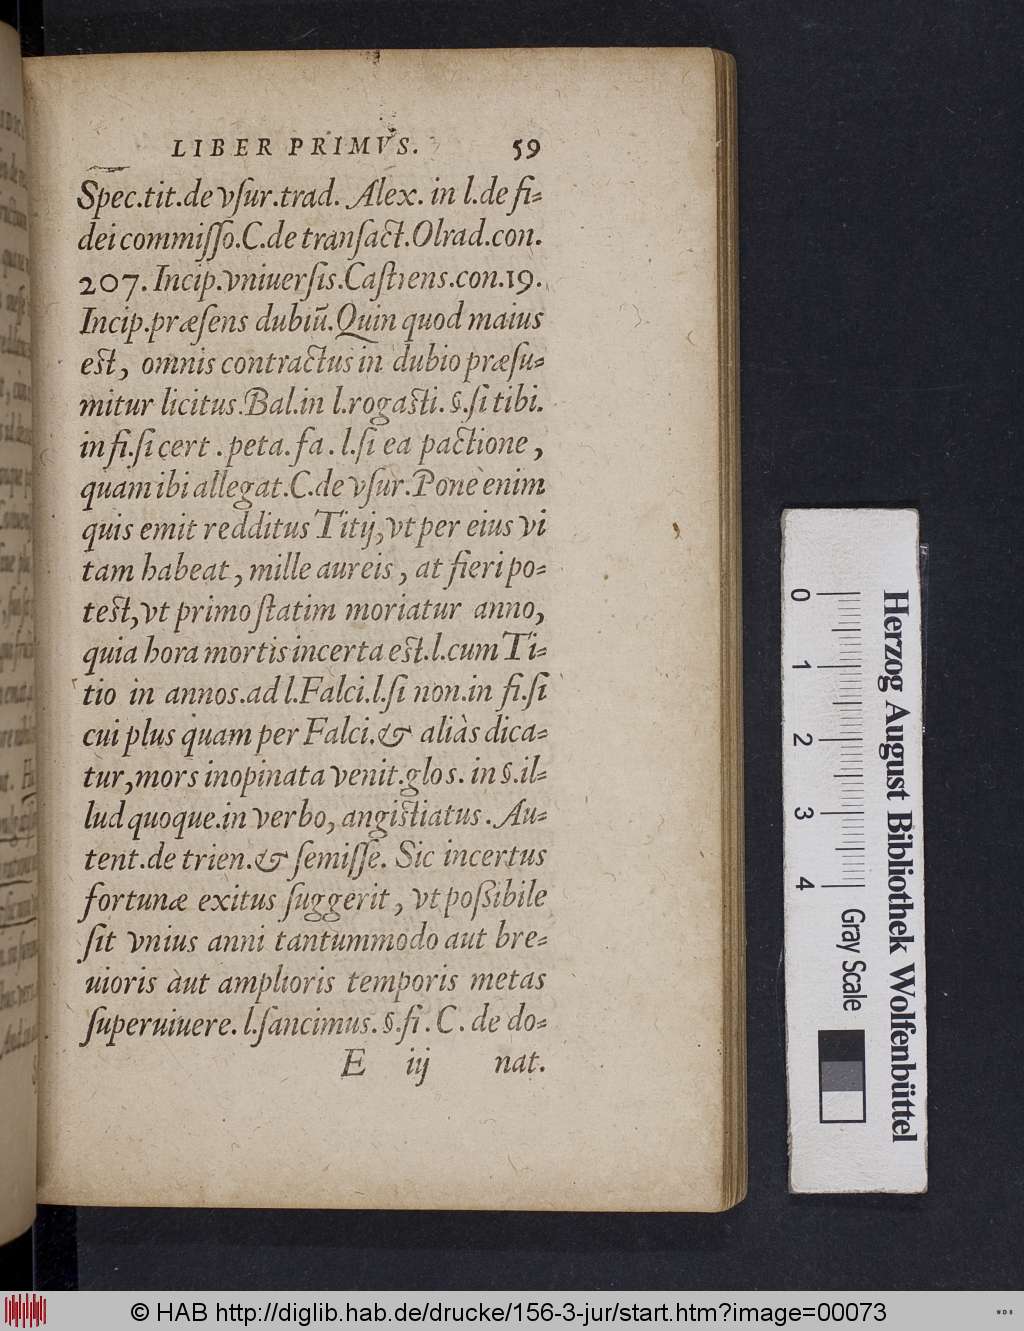 LIBER PRIMVS. 59
Spec.tit.de vſur.trad. Alex. in l.de fi-
dei commiſſo.C.de tranſact.Olrad.con.
207. Incip.vniuerſis.Caſtrens.con.19.
Incip.præſens dubiū.Quin quod maius
est, omnis contractus in dubio præſu-
mitur licitus.Bal.in l.rogaſti.§.ſi tibi.
in fi.ſi cert.peta.fa.l.ſi ea pactione,
quam ibi allegat.C.de vſur.Pone enim
quis emit redditus Titij, vt per eius vi
tam habeat, mille aureis, at fieri po-
test, vt primo ſtatim moriatur anno,
quia hora mortis incerta est.l.cum Ti-
tio in annos.ad l.Falci.l.ſi non.in fi.ſi
cui plus quam per Falci.& aliàs dica-
tur, mors inopinata venit.glos. in §.il-
lud quoque.in verbo, angiſtiatus. Au-
tent.de trien.& ſemiſſe. Sic incertus
fortunæ exitus ſuggerit, vt poſsibile
ſit vnius anni tantummodo aut bre-
uioris aut amplioris temporis metas
ſuperuiuere. l.ſancimus. §.fi. C. de do-
E iij nat.
Herzog August Bibliothek Wolfenbüttel
0 1 2 3 4 Gray Scale
© HAB http://diglib.hab.de/drucke/156-3-jur/start.htm?image=00073